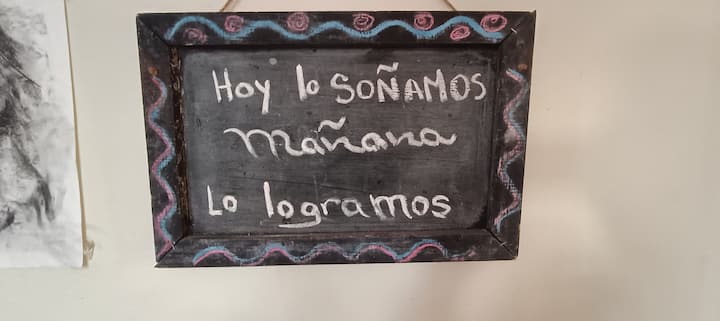 Hoy lo SOÑAMOS
Mañana
Lo logramos